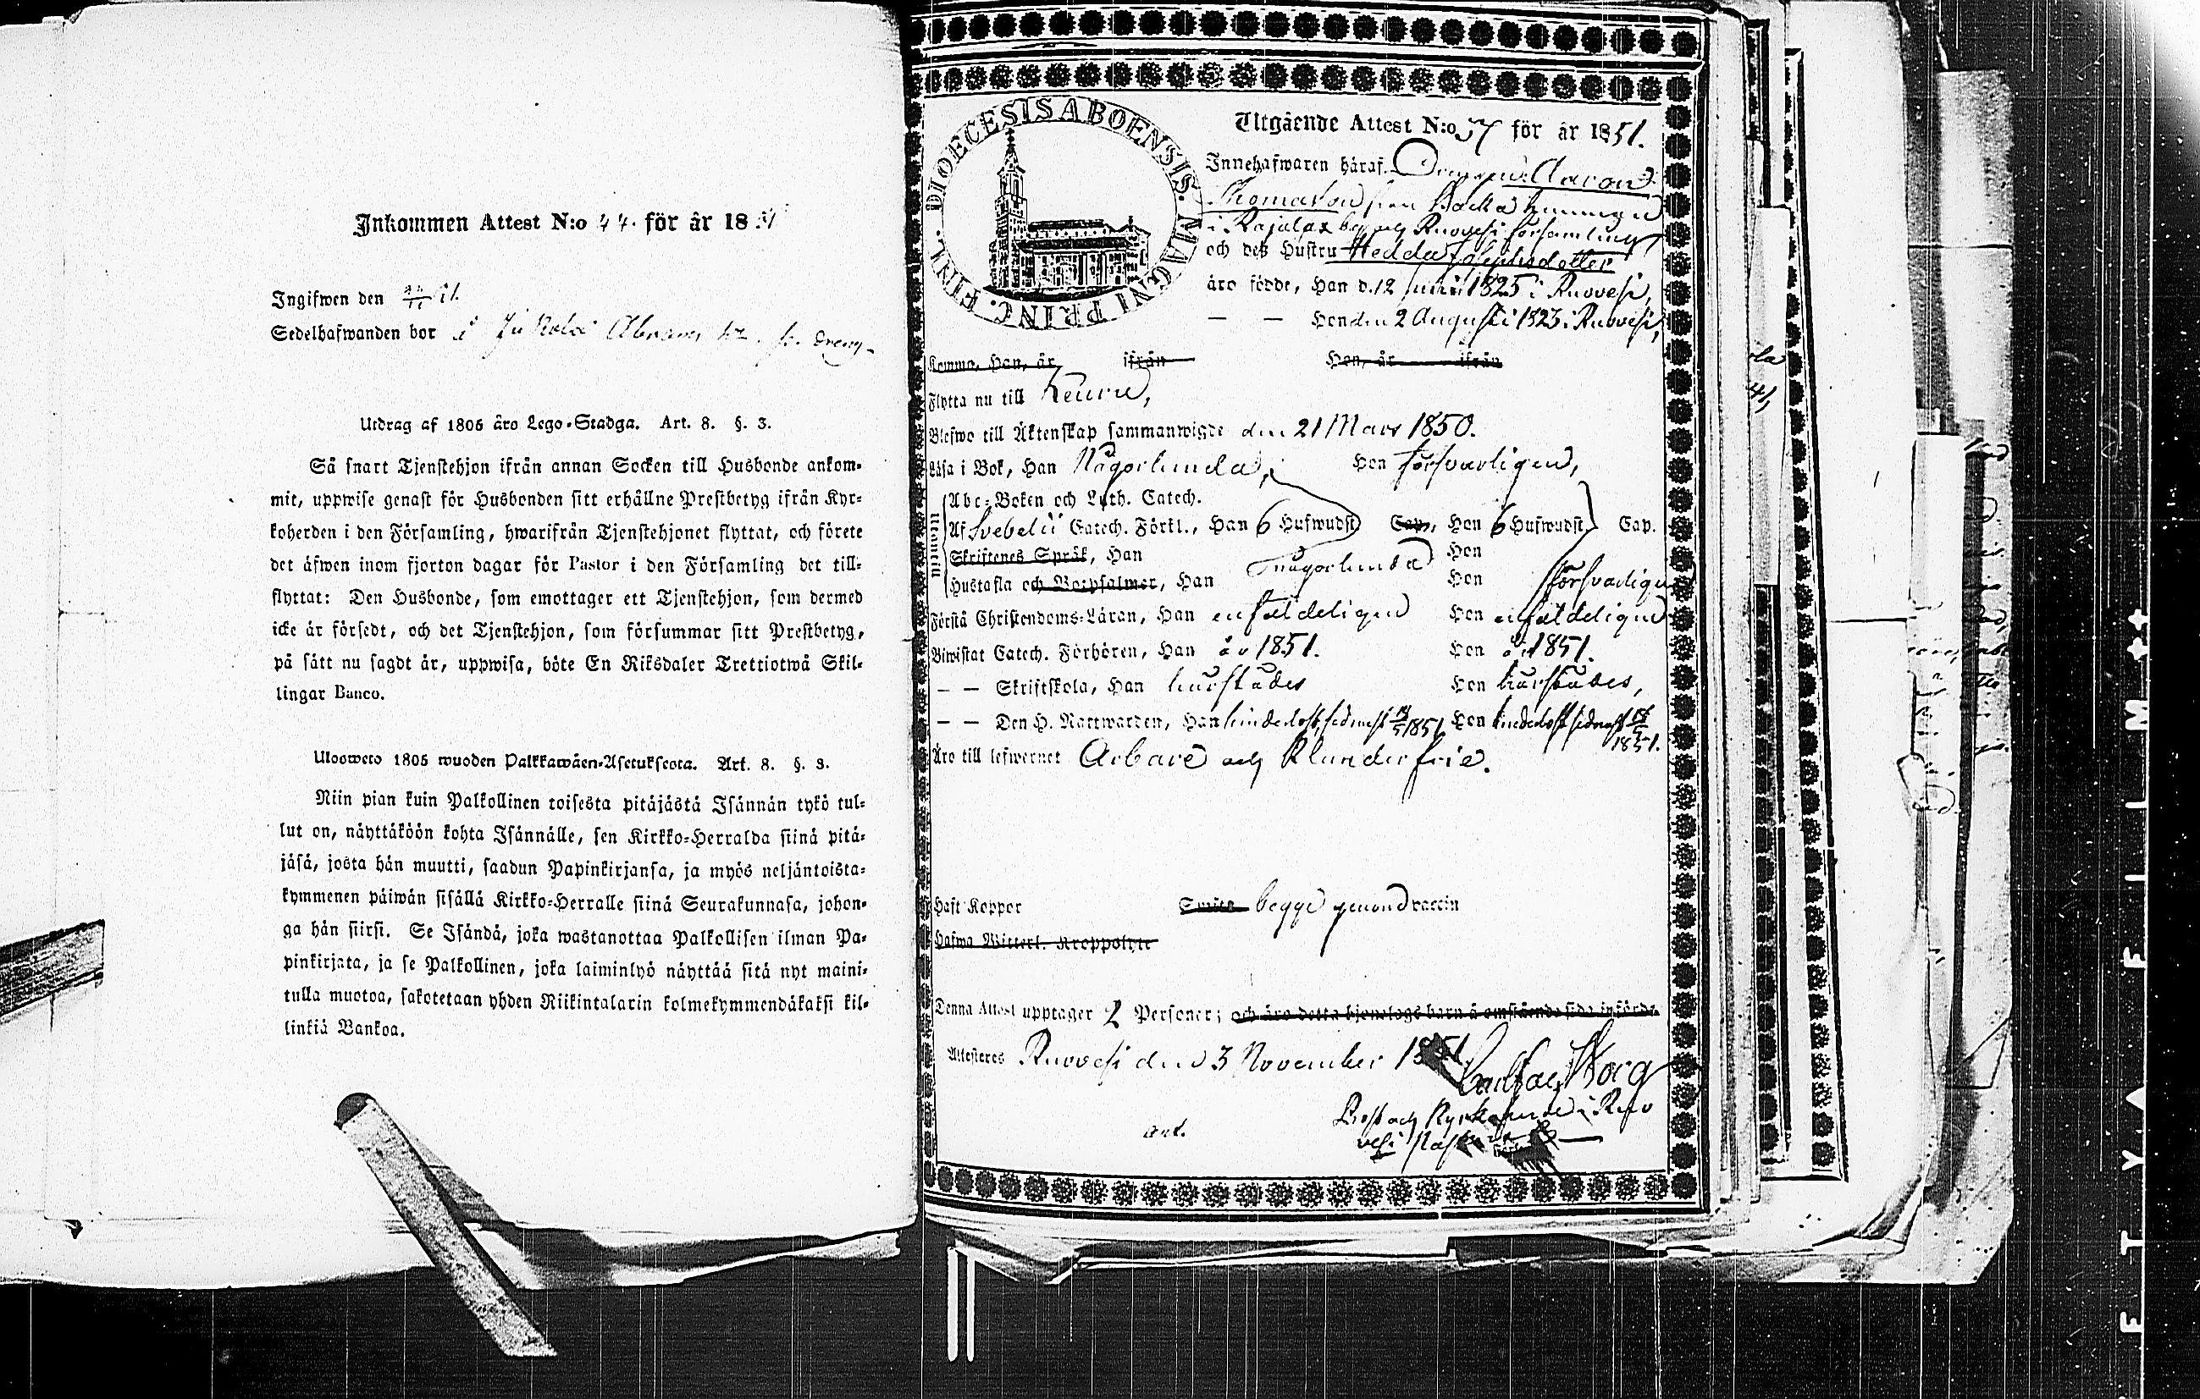 Inkommen Attest N:o 44. för år 1851
Ingifwen den 22/11 51.
Sedelhafwanden bor i Jukola Abram
Utdrag af 1805 års Lego-Stadga. Art. 8. §. 3.
Så snart Tjenstehjon ifrån annan Socken till Husbonde ankom-
mit, uppwise genast för Husbonden sitt erhållne Prestbetyg ifrån Kyr-
koherden i den Församling, hwarifrån Tjenstehjonet flyttat, och förete
det äfwen inom fjorton dagar för Pastor i den Församling det till-
flyttat: Den Husbonde, som emottager ett Tjenstehjon, som dermed
icke är försedt, och det Tjenstehjon, som försummar sitt Prestbetyg,
på sätt nu sagdt är, uppwisa, böte En Riksdaler Trettiotwå Skil-
lingar Banco.
Uloswето 1805 wuoden Palkkawäen-Asetuksesta. Art. 8. §. 3.
Niin pian kuin Palkollinen toisesta pitäjästä Isännän tykö tul-
lut on, näyttäköön kohta Isännälle, sen Kirkko-Herralda siinä pitä-
jäsä, josta hän muutti, saadun Papinkirjansa, ja myös neljäntoista-
kymmenen päiwän sisällä Kirkko-Herralle siinä Seurakunnasa, johon-
ga hän siirsi. Se Isändä, joka wastanottaa Palkollisen ilman Pa-
pinkirjata, ja se Palkollinen, joka laiminlyö näyttää sitä nyt maini-
tulla muotoa, sakotetaan yhden Riikintalarin kolmekymmendäkaksi kil-
linkiä Bankoa.
DIOECESIS ABOENSIS. MAGNI PRINC. FINL.
Utgående Attest N:o 57 för år 1851.
Innehafwaren häraf. Drengen Aaron
Thomasson från Hemmanet
i Rajalax by och Ruovesi församling
och deß Hustru Hedda Josephsdotter
äro födde, Han d. 12 Junii 1825 i Ruovesi,
— — Hon den 2 Augusti 1823 i Ruovesi,
Komma, Han, år ifrån Hon, år ifrån
Flytta nu till Keuru,
Blefwo till Äktenskap sammanwigde den 21 Mars 1850.
Läsa i Bok, Han Någorlunda, Hon försvarligen,
Utantill
Abc-Boken och Luth. Catech.
Af Svebelii Catech. Förkl., Han 6 Hufwudst Cap., Hon 6 Hufwudst Cap.
Skriftenes Språk, Han någorlunda Hon
Hustafla och Botpsalmer, Han Hon försvarligen
Förstå Christendoms-Läran, Han enfaldeligen Hon enfaldeligen
Biwistat Catech. Förhören, Han år 1851. Hon år 1851.
— — Skriftskola, Han härstädes Hon härstädes,
— — Den H. Nattwarden, Han hinderlöst, sednast 1851 Hon hinderlöst sednast
1851.
Äro till lefwernet Ärbare och Klanderfrie.
Haft Koppor Smitta begge genom Vaccin
Hafwa Witterl. Kroppslyte
Denna Attest upptager 2 Personer; och äro detta hjonelags barn å omstående sida införde.
Attesteras Ruovesi den 3 November 1851
Prost och Kyrkoherde i Ruo
vesi
Ant.
ETYÄ FILM